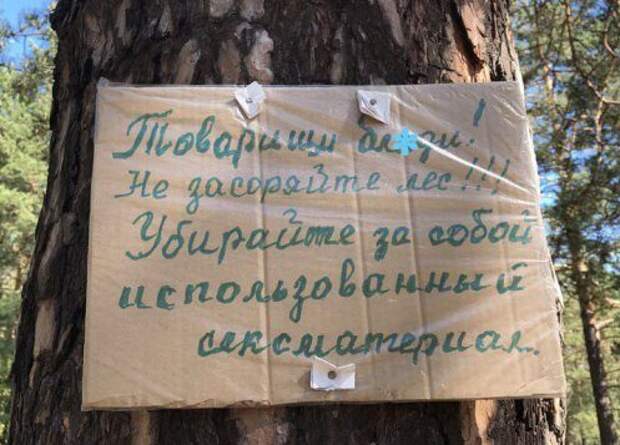 Товарищи бл*ди!
Не засоряйте лес!!!
Убирайте за собой
использованный
сексматериал.